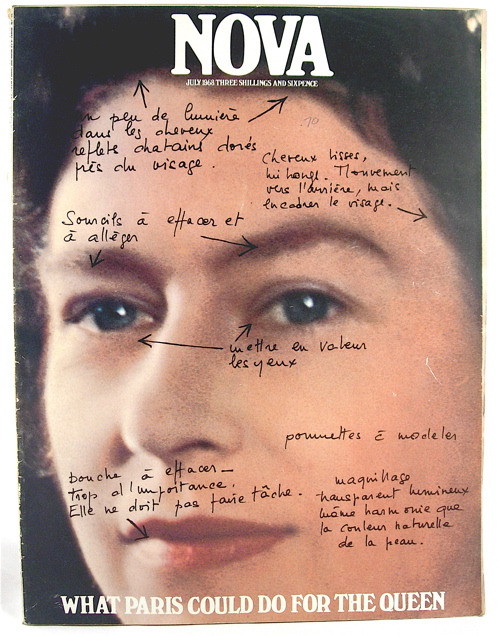 NOVA
JULY 1968 THREE SHILLINGS AND SIXPENCE
un peu de lumière
dans les cheveux
reflets chatains dorés
près du visage.
Cheveux lisses,
mi longs. Mouvement
vers l'arrière, mais
encadrer le visage.
Sourcils à effacer et
à alléger
mettre en valeur
les yeux
pommettes à modeler
bouche à effacer –
trop d'importance.
Elle ne doit pas faire tâche.
maquillage
transparent lumineux
même harmonie que
la couleur naturelle
de la peau.
WHAT PARIS COULD DO FOR THE QUEEN